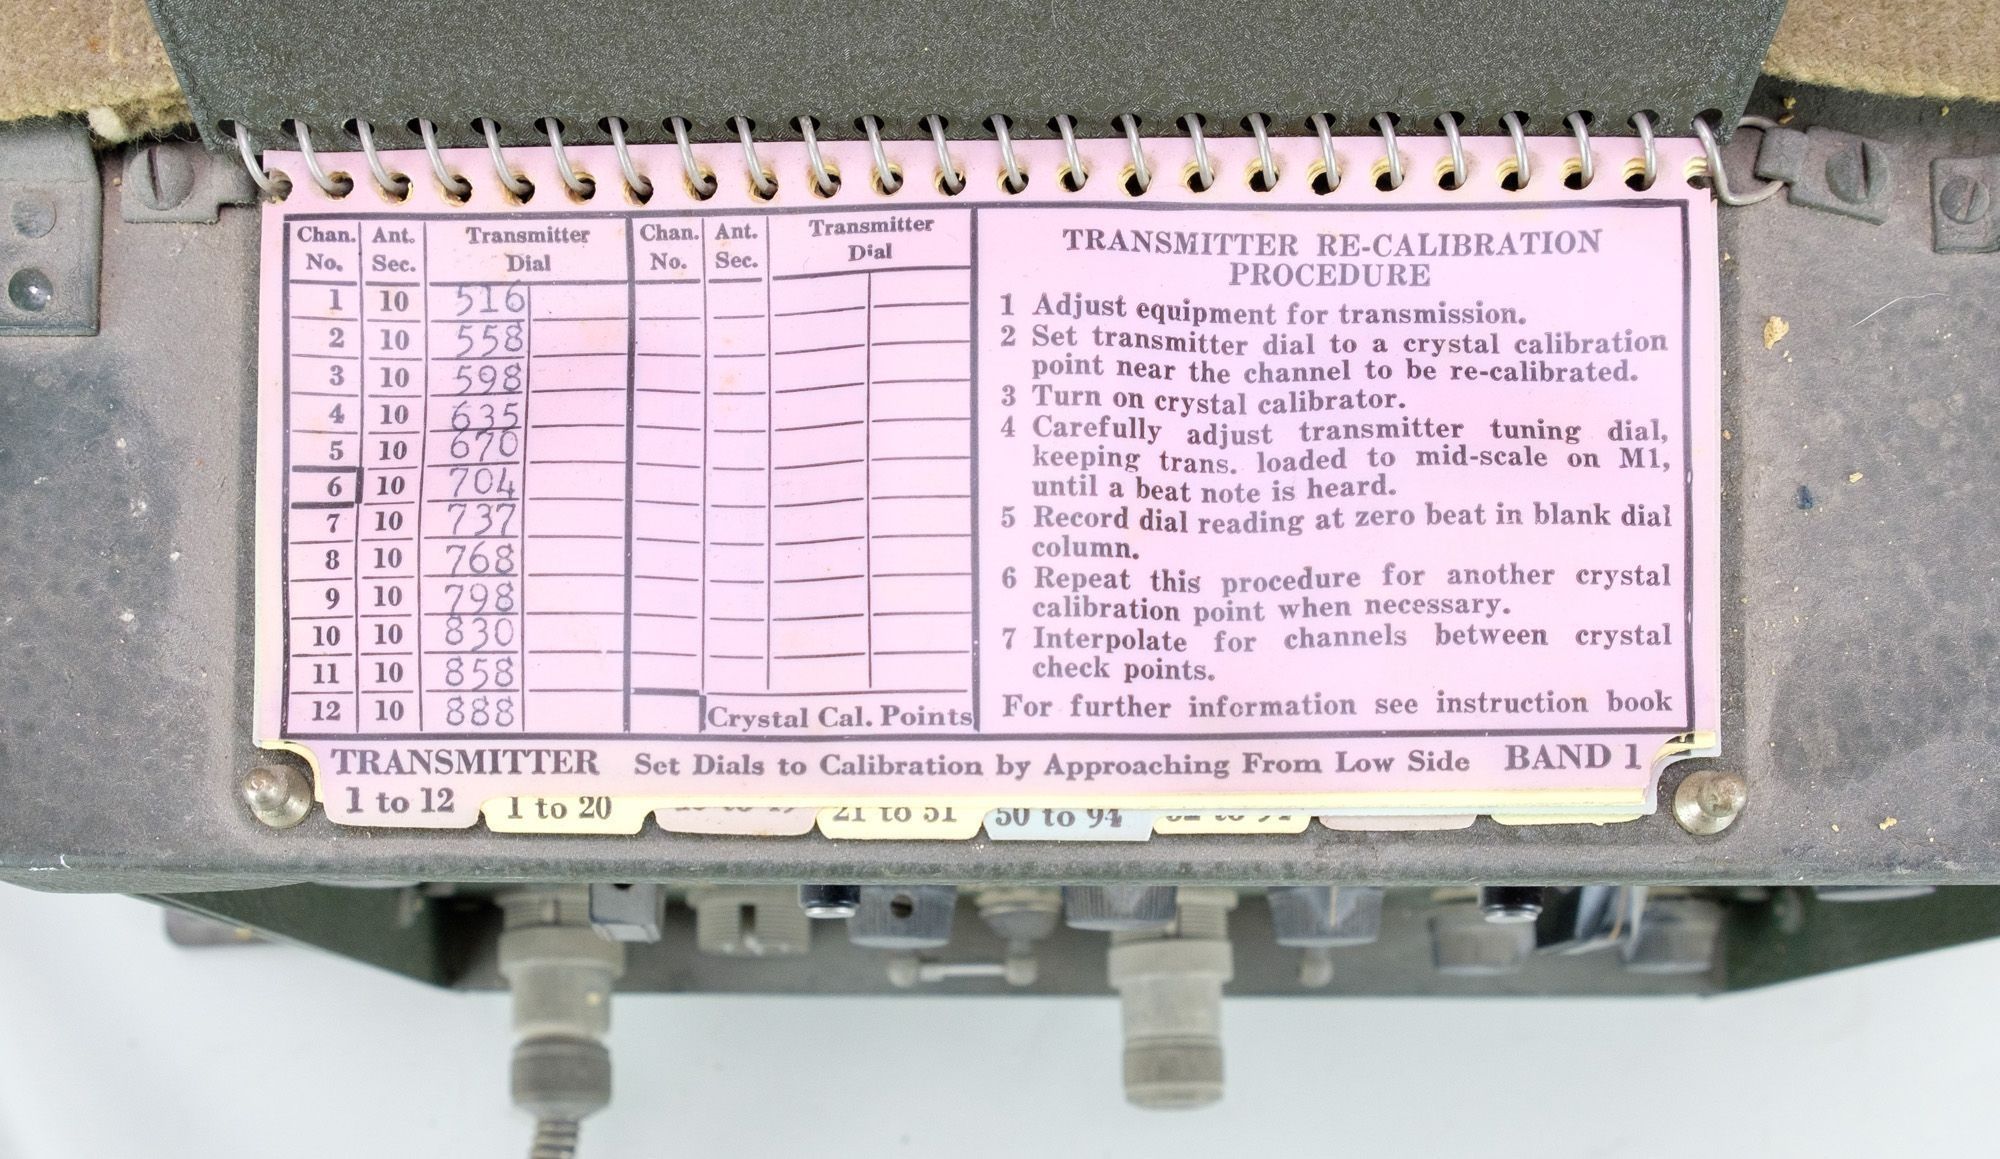 Chan. No. Ant. Sec. Transmitter Dial Chan. No. Ant. Sec. Transmitter Dial
1 10 516
2 10 558
3 10 598
4 10 635
5 10 670
6 10 704
7 10 737
8 10 768
9 10 798
10 10 830
11 10 858
12 10 888
Crystal Cal. Points
TRANSMITTER RE-CALIBRATION
PROCEDURE
1 Adjust equipment for transmission.
2 Set transmitter dial to a crystal calibration
point near the channel to be re-calibrated.
3 Turn on crystal calibrator.
4 Carefully adjust transmitter tuning dial,
keeping trans. loaded to mid-scale on M1,
until a beat note is heard.
5 Record dial reading at zero beat in blank dial
column.
6 Repeat this procedure for another crystal
calibration point when necessary.
7 Interpolate for channels between crystal
check points.
For further information see instruction book
TRANSMITTER Set Dials to Calibration by Approaching From Low Side BAND 1
1 to 12 1 to 20 21 to 51 50 to 94